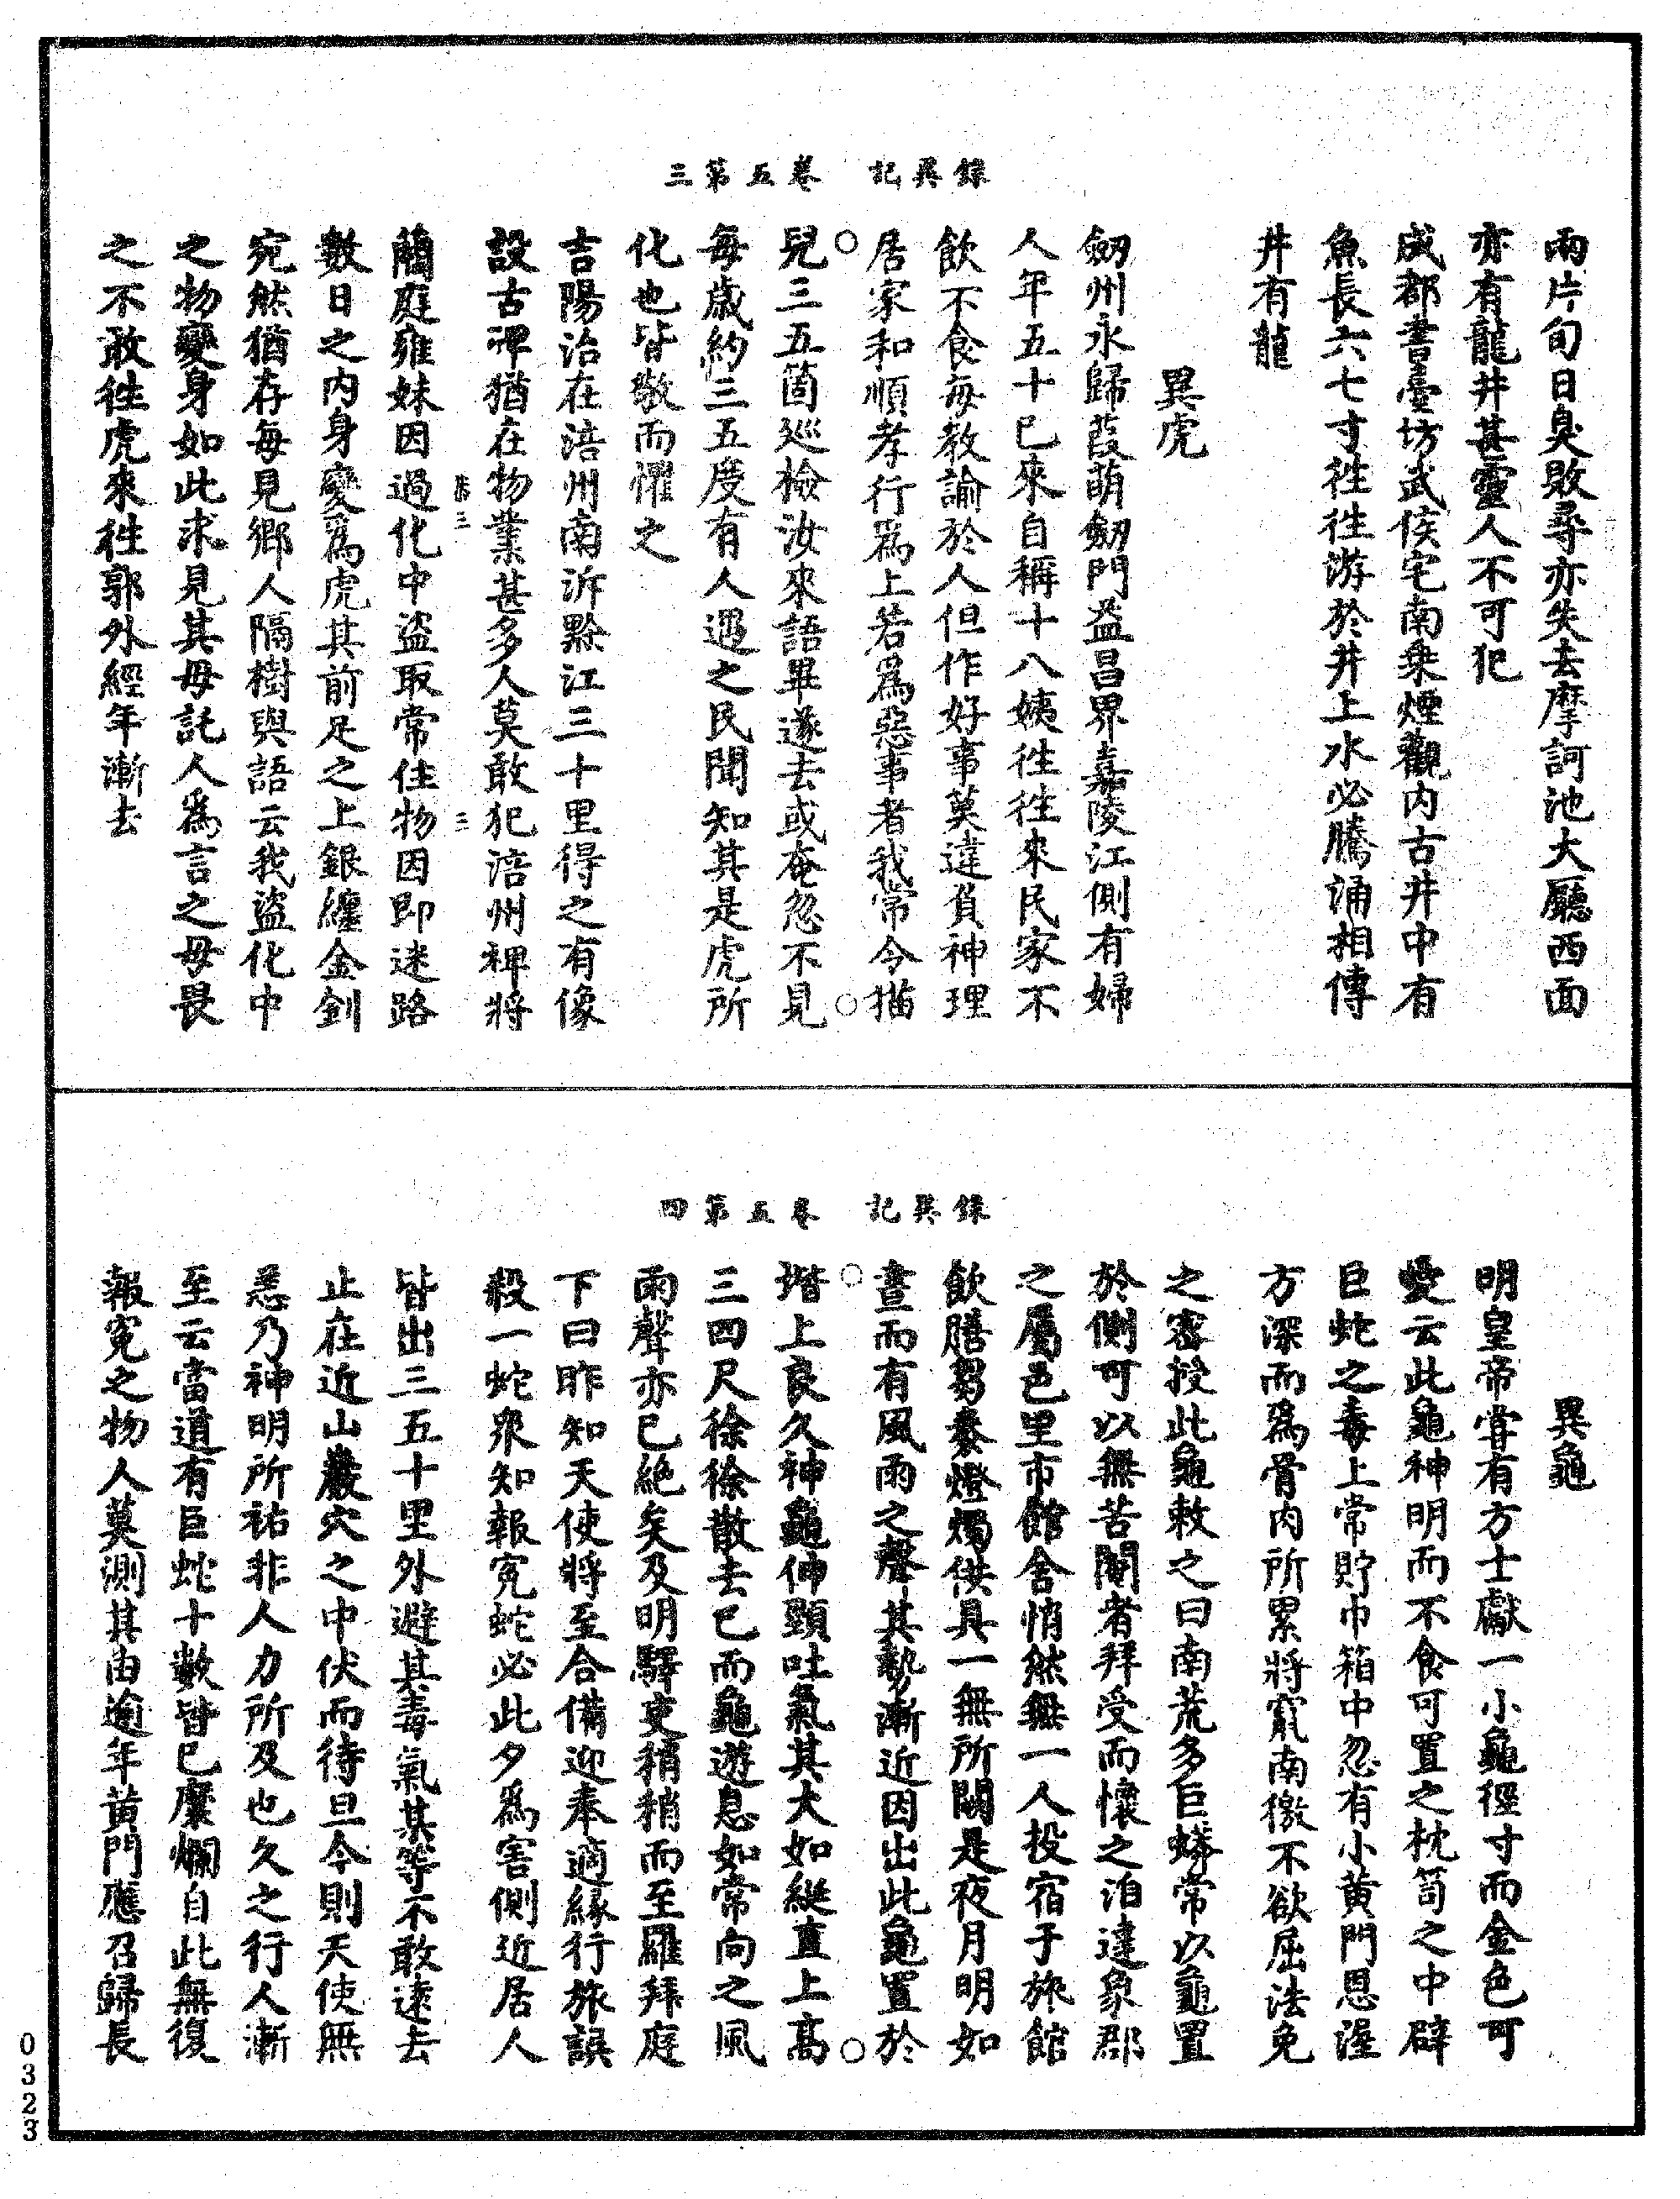 三第五卷　記異錄
兩片旬日臭敗尋亦失去摩訶池大廳西面
亦有龍井甚靈人不可犯
成都書臺坊武侯宅南乗煙觀內古井中有
魚長六七寸徃徃游於井上水必騰涌相傳
井有龍
異虎
劒州永歸葭萌劒門益昌界嘉陵江側有婦
人年五十已來自稱十八姨徃徃來民家不
飲不食每教諭於人但作好事莫違負神理
居家和順孝行爲上若爲惡事者我常令猫
兒三五箇巡檢汝來語畢遂去或奄忽不見
每歲約三五度有人遇之民間知其是虎所
化也皆敬而懼之
吉陽治在涪州南泝黔江三十里得之有像
設古碑猶在物業甚多人莫敢犯涪州裨將
三　三
藺庭雍妹因過化中盜取常住物因即迷路
數日之內身變爲虎其前足之上銀纏金釧
宛然猶存每見鄉人隔樹與語云我盜化中
之物變身如此求見其母託人爲言之母畏
之不敢徃虎來徃郭外經年漸去
四第五卷　記異錄
異龜
明皇帝甞有方士獻一小龜徑寸而金色可
愛云此龜神明而不食可置之枕笥之中辟
巨蛇之毒上常貯巾箱中忽有小黄門恩渥
方深而爲骨肉所累將竄南徼不欲屈法免
之密授此龜敕之曰南荒多巨蟒常以龜置
於側可以無苦閹者拜受而懷之洎達象郡
之屬邑里市館舍悄然無一人投宿于旅館
飲膳芻豢燈燭供具一無所闕是夜月明如
晝而有風雨之聲其勢漸近因出此龜置於
堦上良久神龜伸頸吐氣其大如綖直上高
三四尺徐徐散去已而龜遊息如常向之風
雨聲亦已絶矣及明驛吏稍稍而至羅拜庭
下曰昨知天使將至合備迎奉適縁行旅誤
殺一蛇衆知報寃蛇必此夕爲害側近居人
皆出三五十里外避其毒氣某等不敢遠去
止在近山巖穴之中伏而待旦今則天使無
恙乃神明所祐非人力所及也久之行人漸
至云當道有巨蛇十數皆已糜爛自此無復
報寃之物人莫測其由逾年黄門應召歸長
0323